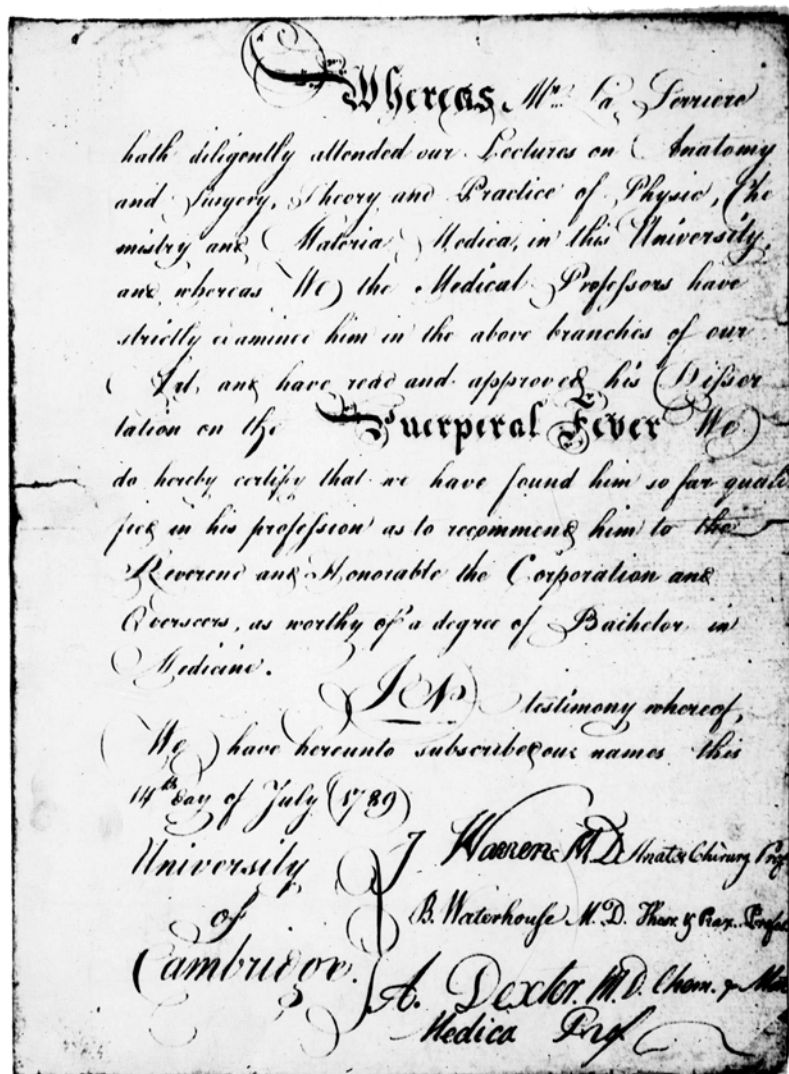 Whereas Mr. La Terriere
hath diligently attended our Lectures on Anatomy
and Surgery, Theory and Practice of Physic, Che
mistry and Materia Medica, in this University,
and whereas We the Medical Professors have
strictly examined him in the above branches of our
Art, and have read and approved his Disser
tation on the Puerperal Fever We
do hereby certify that we have found him so far quali
fied in his profession as to recommend him to the
Reverend and Honorable the Corporation and
Overseers, as worthy of a degree of Bachelor in
Medicine.
IN testimony whereof,
We have hereunto subscribed our names this
14th day of July 1789
University
of
Cambridge.
J Warren M.D. Anat & Chirurg Prof
B. Waterhouse M.D. Theor. & Prax. Profes
A. Dexter. M.D. Chem. & Mat
Medica Prof